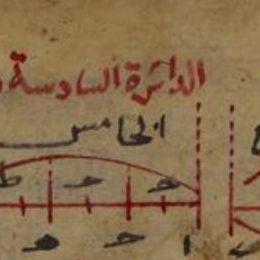 الدائرة السادسة
الخامس
ط ح ح
ه ح ا